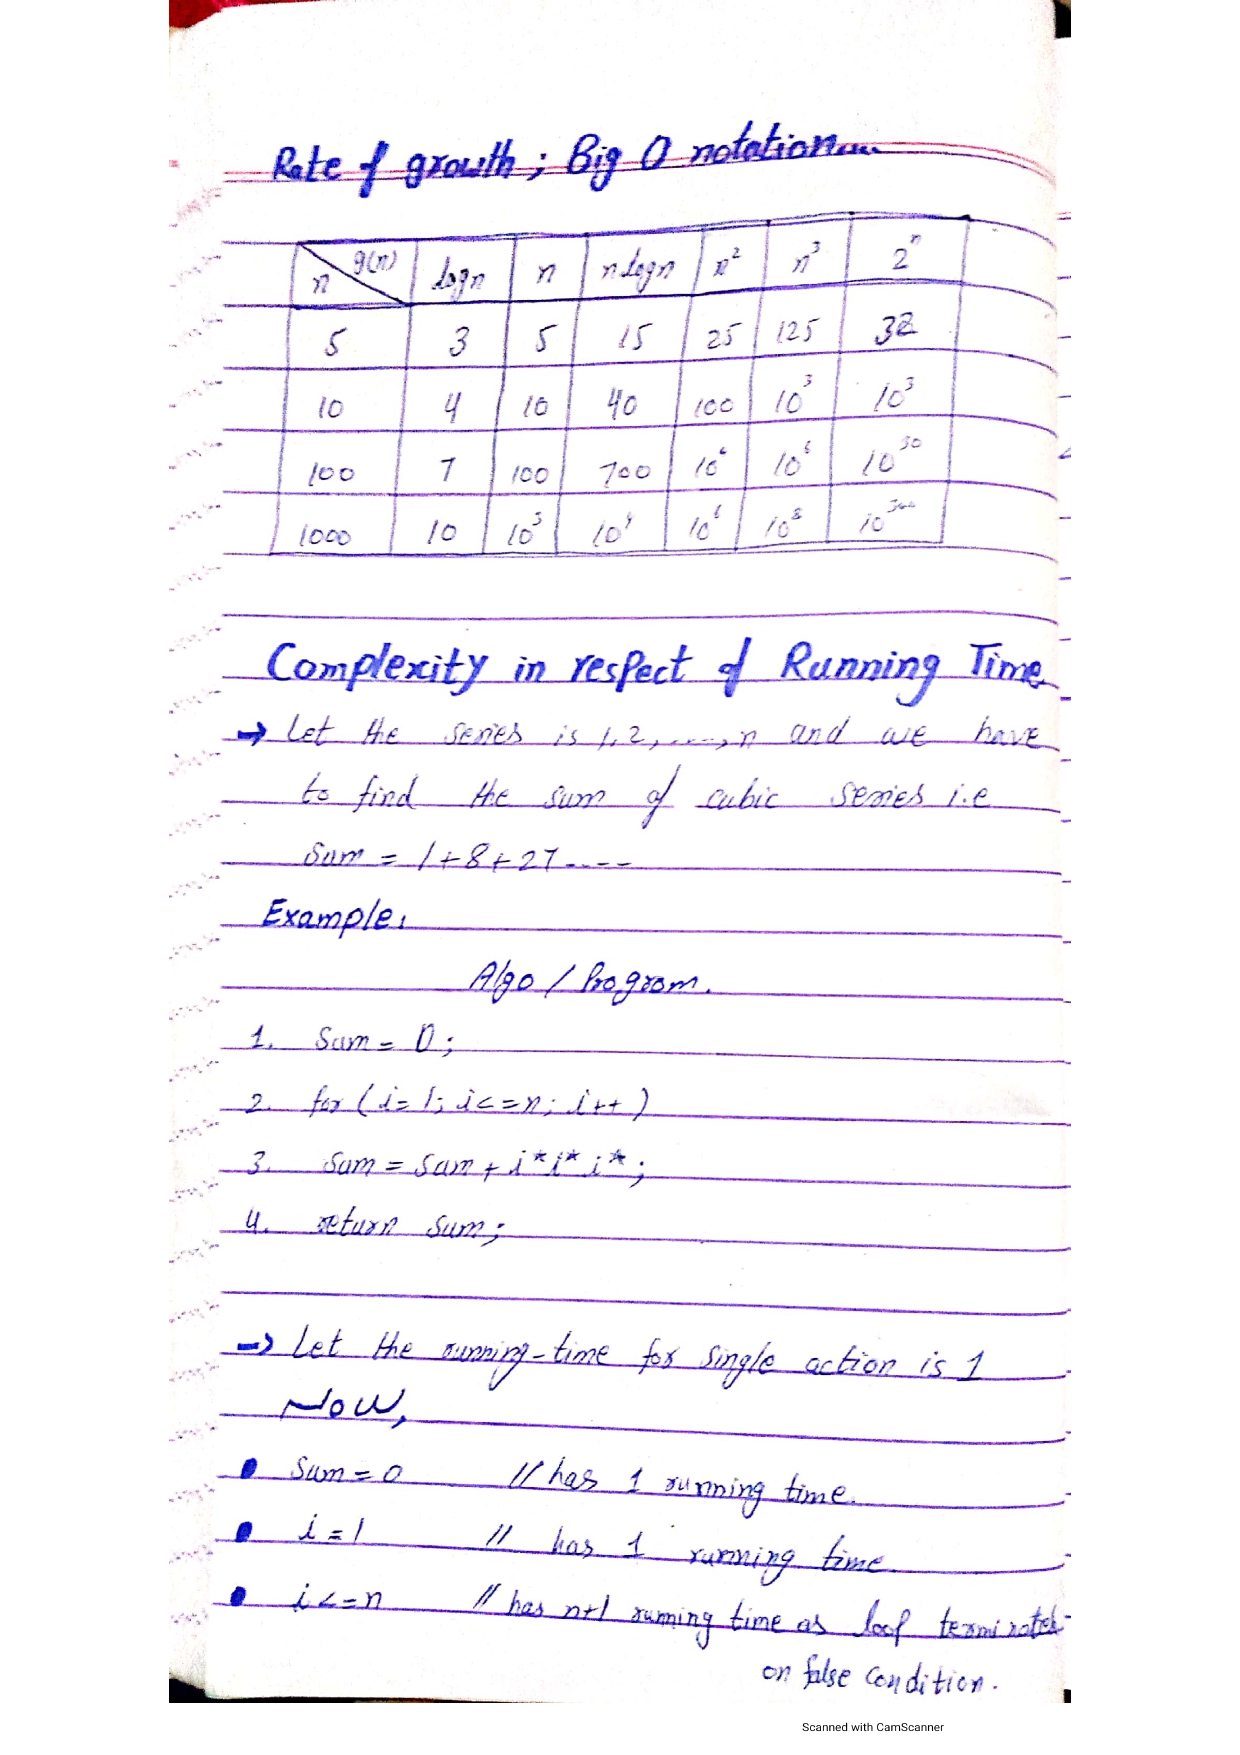 Rate of growth ; Big O notation....
n g(n) logn n nlogn n² n³ 2ⁿ
5 3 5 15 25 125 32
10 4 10 40 100 10³ 10³
100 7 100 700 10⁶ 10⁶ 10³⁰
1000 10 10³ 10⁴ 10⁶ 10⁸ 10³⁰⁰
Complexity in respect of Running Time
→ Let the series is 1, 2, ....., n and we have
to find the sum of cubic series i.e
Sum = 1+8+27----
Example:
Algo / Program.
1. Sum = 0;
2. for (i=1; i<=n; i++)
3. Sum = Sum + i*i*i*;
4. return sum;
→ Let the running-time for single action is 1
Now,
• Sum = 0 // has 1 running time.
• i = 1 // has 1 running time
• i <= n // has n+1 running time as loop terminates
on false condition.
Scanned with CamScanner